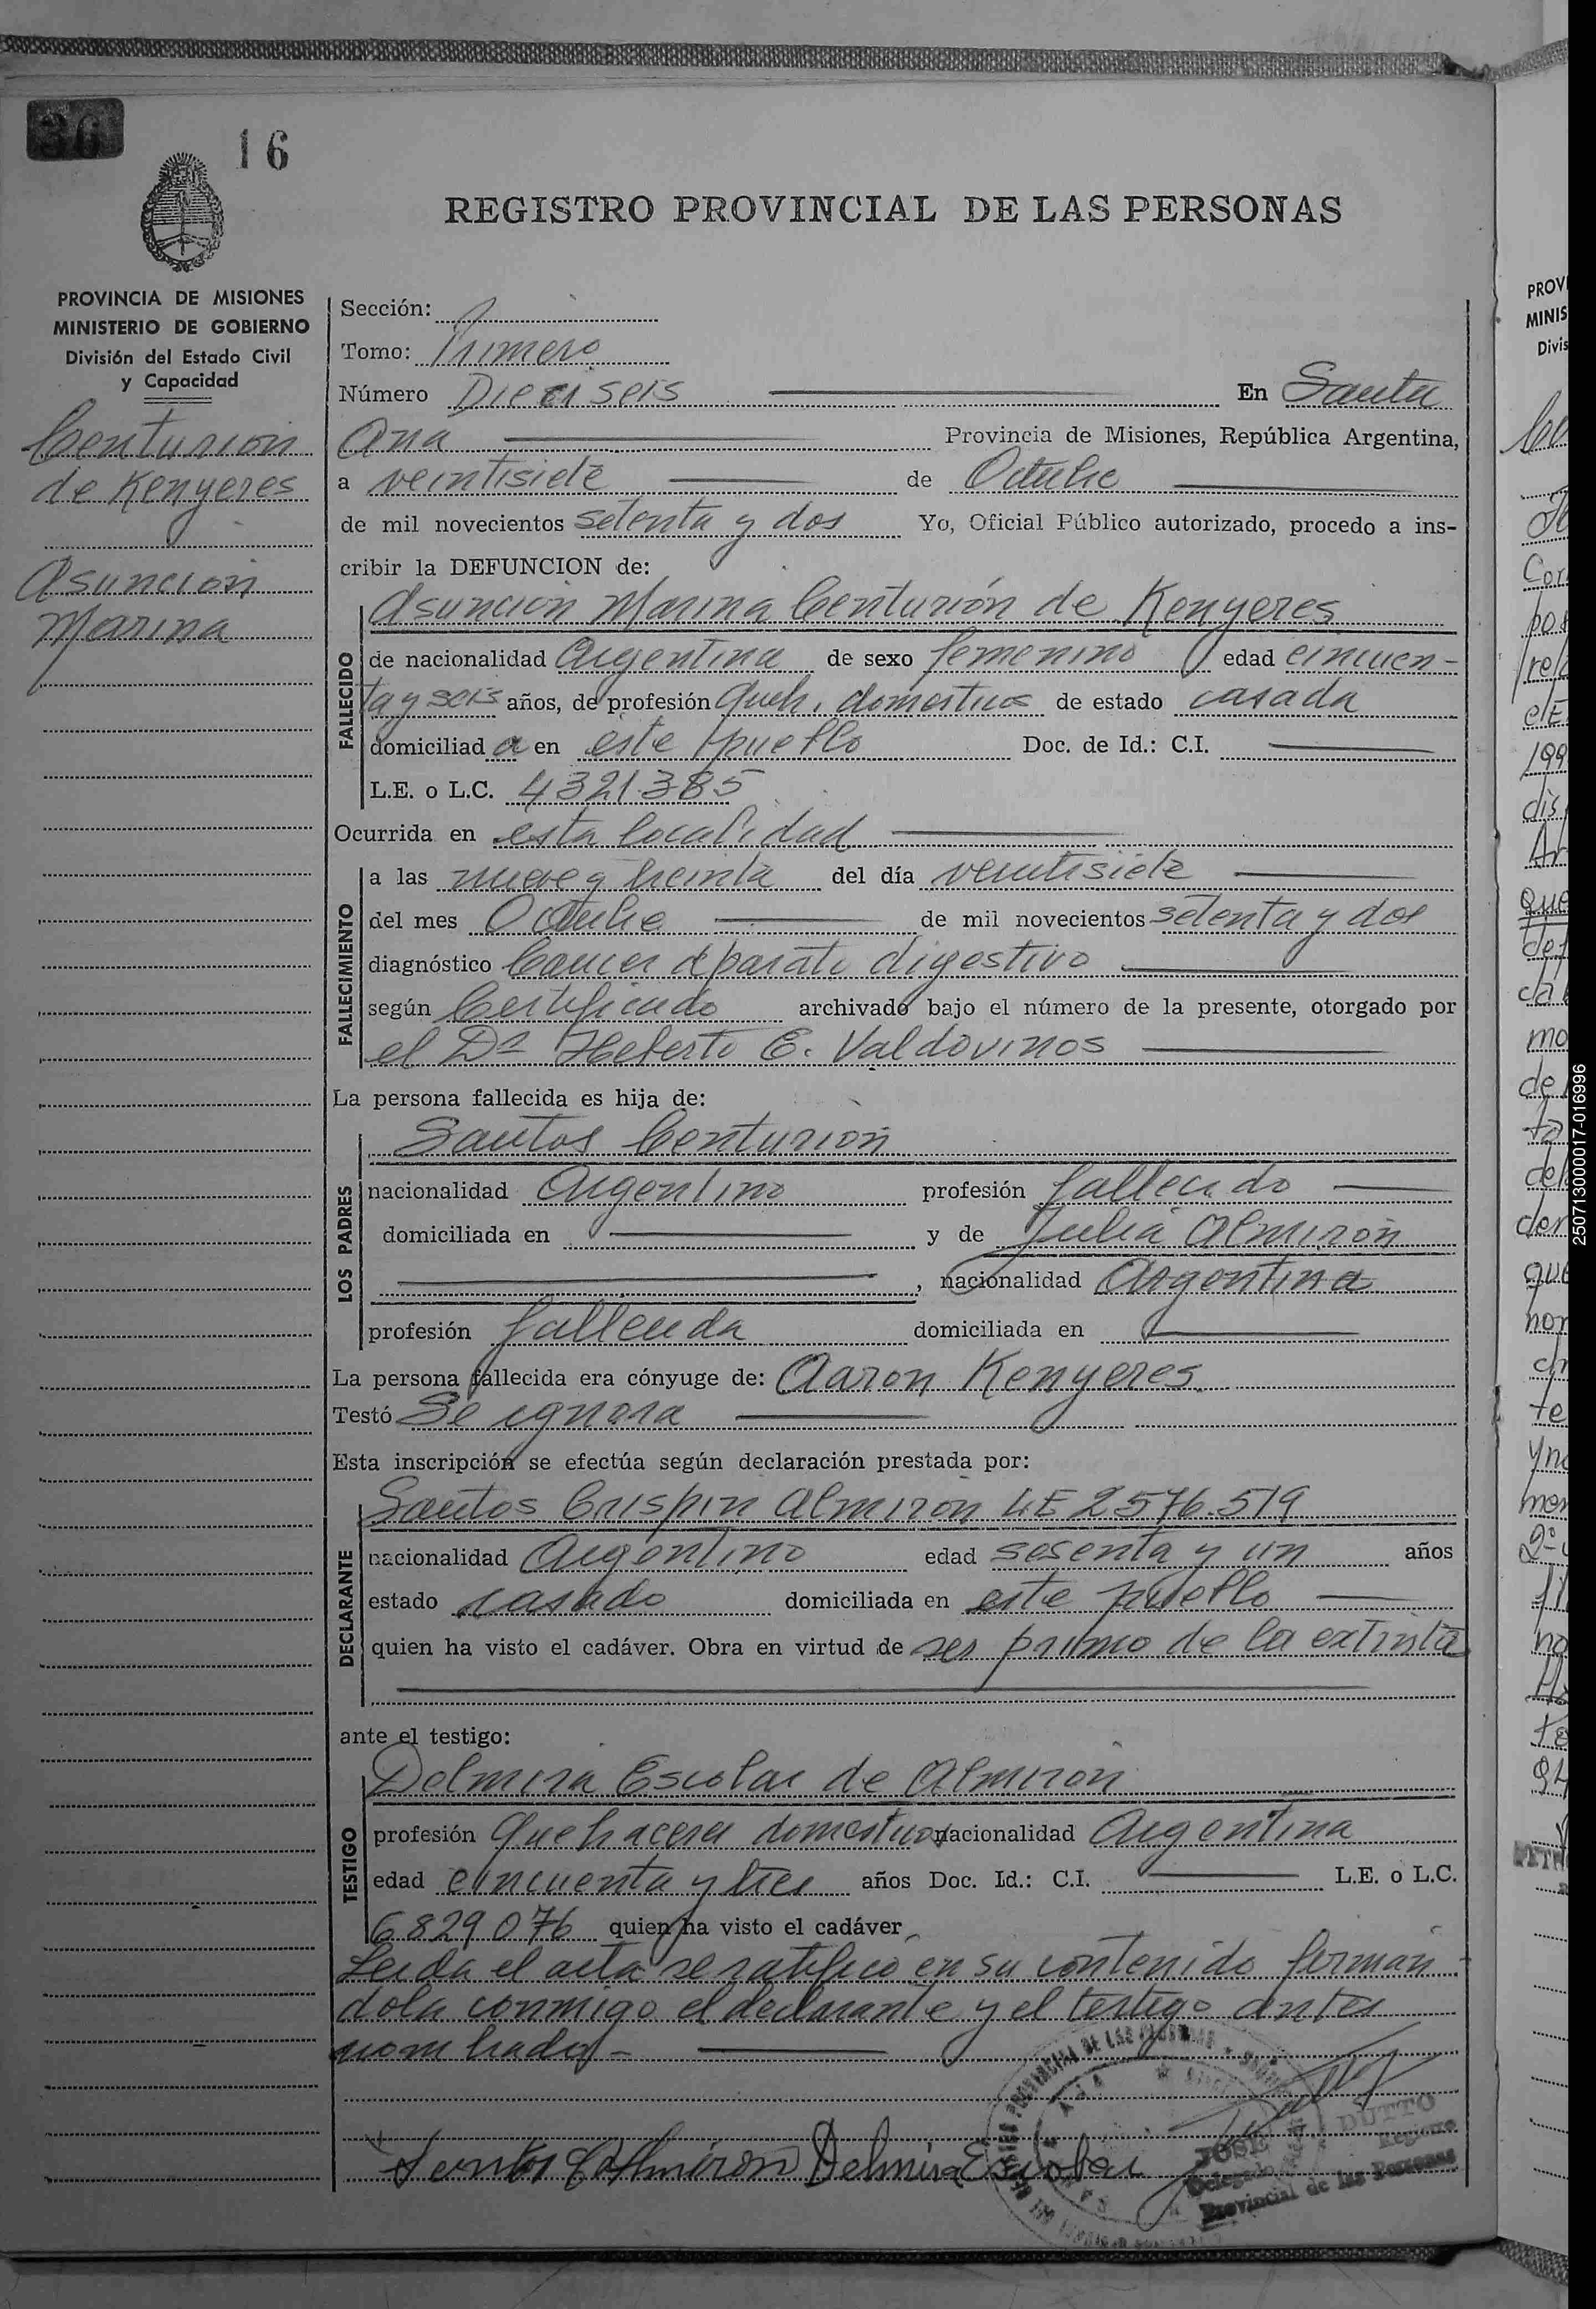 36
16
REGISTRO PROVINCIAL DE LAS PERSONAS
PROVINCIA DE MISIONES
MINISTERIO DE GOBIERNO
División del Estado Civil
y Capacidad
Centurion
de Kenyeres
Asuncion
Marina
Sección:
Tomo: Primero
Número Dieciseis En Santa
Ana Provincia de Misiones, República Argentina,
a veintisiete de Octubre
de mil novecientos setenta y dos Yo, Oficial Público autorizado, procedo a ins-
cribir la DEFUNCION de:
Asunción Marina Centurión de Kenyeres
FALLECIDO
de nacionalidad Argentina de sexo femenino edad cincuen-
ta y seis años, de profesión Queh. domesticos de estado casada
domiciliad a en este pueblo Doc. de Id.: C.I.
L.E. o L.C. 4321.385
Ocurrida en esta localidad
FALLECIMIENTO
a las nueve y treinta del día veintisiete
del mes Octubre de mil novecientos setenta y dos
diagnóstico Cancer aparato digestivo
según Certificado archivado bajo el número de la presente, otorgado por
el Dr Heberto E. Valdovinos
La persona fallecida es hija de:
Santos Centurión
LOS PADRES
nacionalidad Argentino profesión fallecido
domiciliada en y de Julia Almirón
, nacionalidad Argentina
profesión fallecida domiciliada en
La persona fallecida era cónyuge de: Aaron Kenyeres
Testó Se ignora
Esta inscripción se efectúa según declaración prestada por:
Santos Crispin Almiron LE 2576.519
DECLARANTE
nacionalidad Argentino edad sesenta y un años
estado casado domiciliada en este pueblo
quien ha visto el cadáver. Obra en virtud de ser primo de la extinta
ante el testigo:
Delmira Escobar de Almiron
TESTIGO
profesión Quehaceres domesticos nacionalidad Argentina
edad cincuenta y tres años Doc. Id.: C.I. L.E. o L.C.
6829076 quien ha visto el cadáver
Leida el acta se ratifico en su contenido firman
dola conmigo el declarante y el testigo antes
nombrados -
Santos C Almiron Delmira Escobar
JOSE DUTTO
Delegado Registro
Provincial de las Personas
250713000017-016996